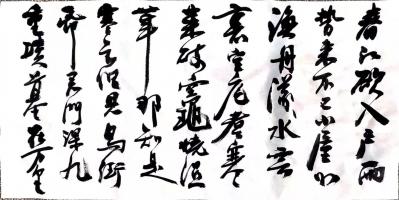 春江欲入户雨
勢来不已小屋如
漁舟濛水雲
裏空庖煮寒
菜破竈燒溼
葦那知是
寒食但見烏銜
帋君門深九
重墳墓在万里